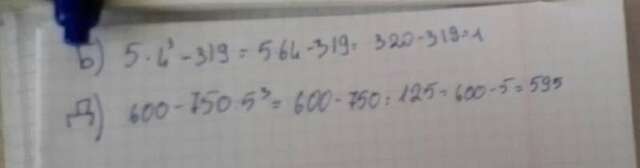 Б) 5·4³-319=5·64-319=320-319=1
Д) 600-750:5³=600-750:125=600-5=595